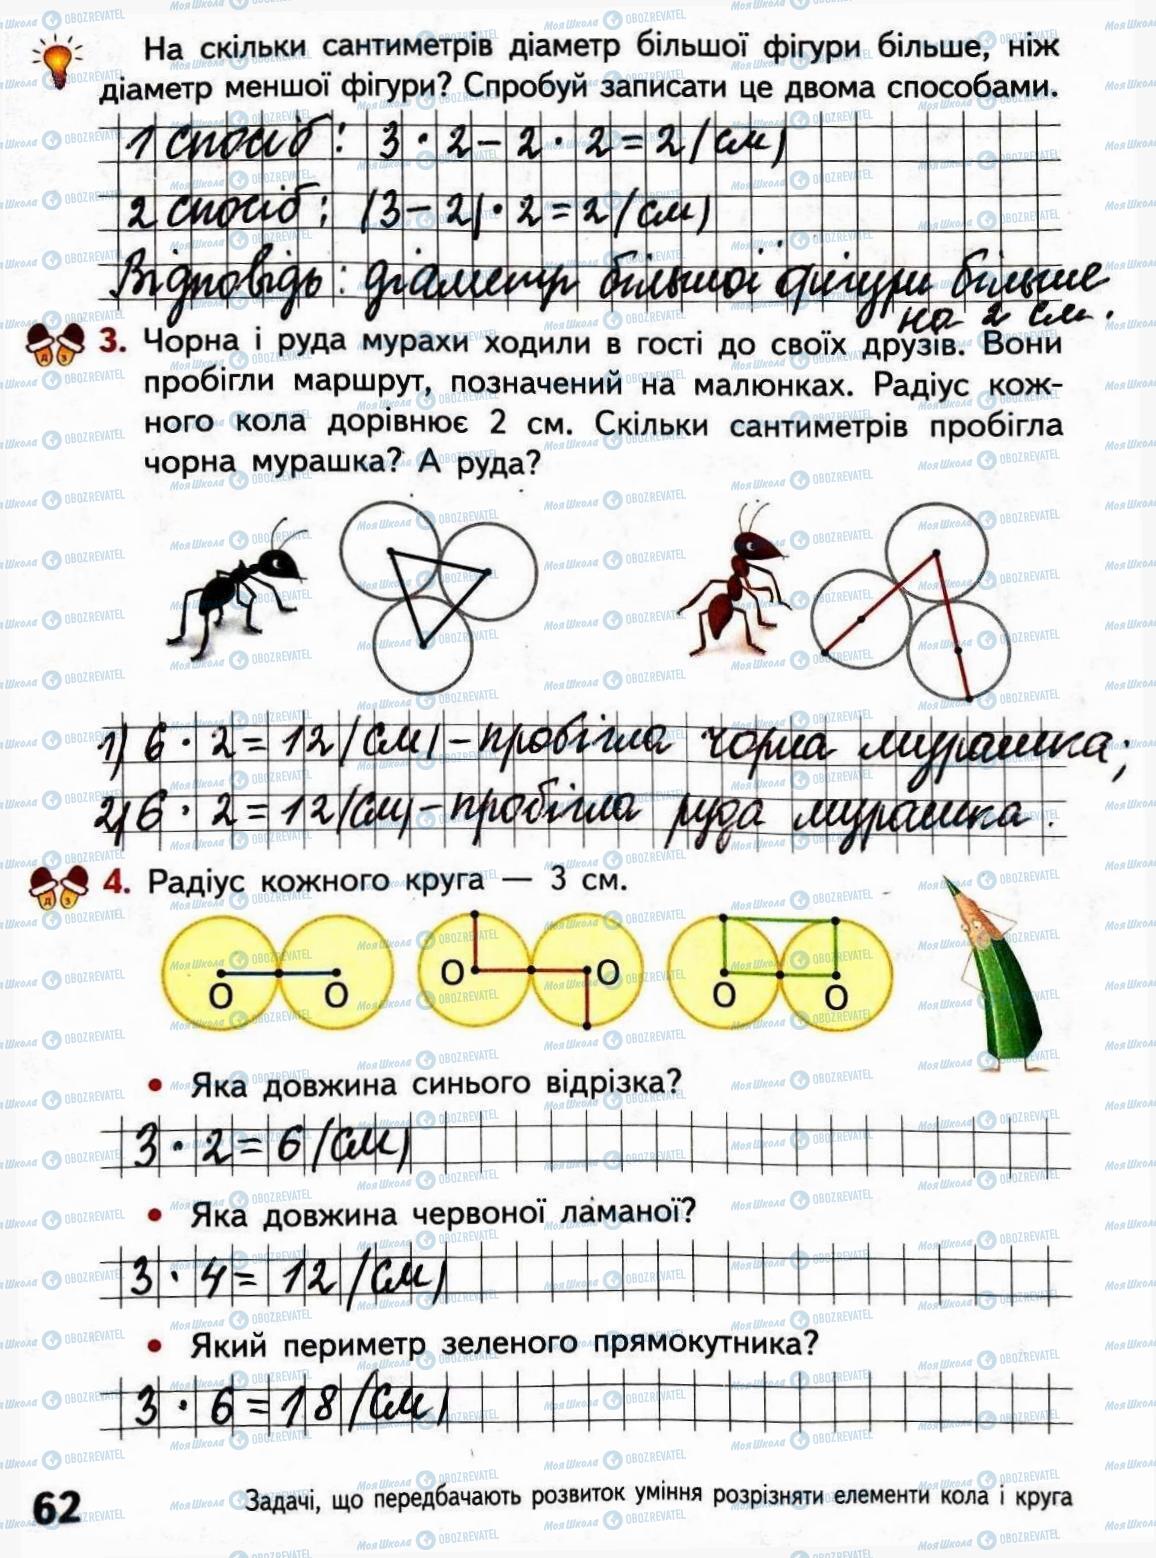 На скільки сантиметрів діаметр більшої фігури більше, ніж
діаметр меншої фігури? Спробуй записати це двома способами.
1 спосіб: 3 · 2 – 2 · 2 = 2 (см)
2 спосіб: (3 – 2) · 2 = 2 (см)
Відповідь: діаметр більшої фігури більше
на 2 см.
3. Чорна і руда мурахи ходили в гості до своїх друзів. Вони
пробігли маршрут, позначений на малюнках. Радіус кож-
ного кола дорівнює 2 см. Скільки сантиметрів пробігла
чорна мурашка? А руда?
1) 6 · 2 = 12 (см) – пробігла чорна мурашка;
2) 6 · 2 = 12 (см) – пробігла руда мурашка.
д з 4. Радіус кожного круга — 3 см.
О О О О О О
• Яка довжина синього відрізка?
3 · 2 = 6 (см)
• Яка довжина червоної ламаної?
3 · 4 = 12 (см)
• Який периметр зеленого прямокутника?
3 · 6 = 18 (см)
62 Задачі, що передбачають розвиток уміння розрізняти елементи кола і круга
МояШкола OBOZREVATEL